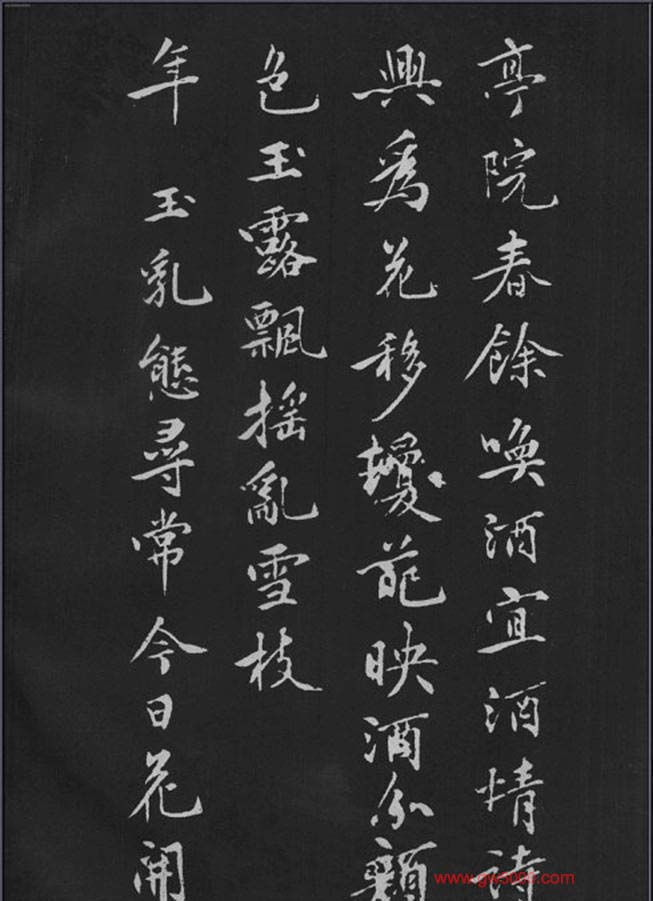 亭院春餘喚酒宜酒情詩
興爲花移瓊葩映酒分顏
色玉露飄搖亂雪枝
年 玉乳態尋常今日花開